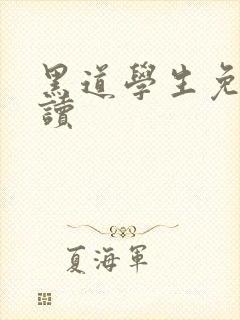 黑道學生免
讀
夏海軍